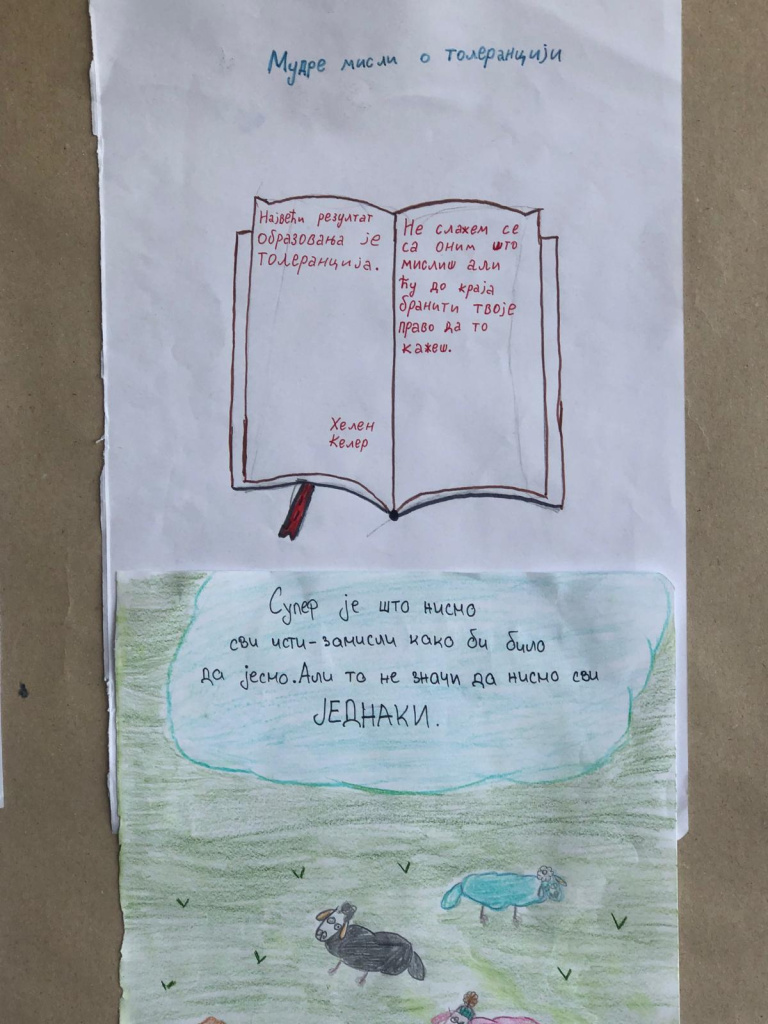 Мудре мисли о толеранцији
Највећи резултат
образовања је
толеранција.
Хелен
Келер
Не слажем се
са оним што
мислиш али
ћу до краја
бранити твоје
право да то
кажеш.
Супер је што нисмо
сви исти-замисли како би било
да јесмо. Али то не значи да нисмо сви
ЈЕДНАКИ.